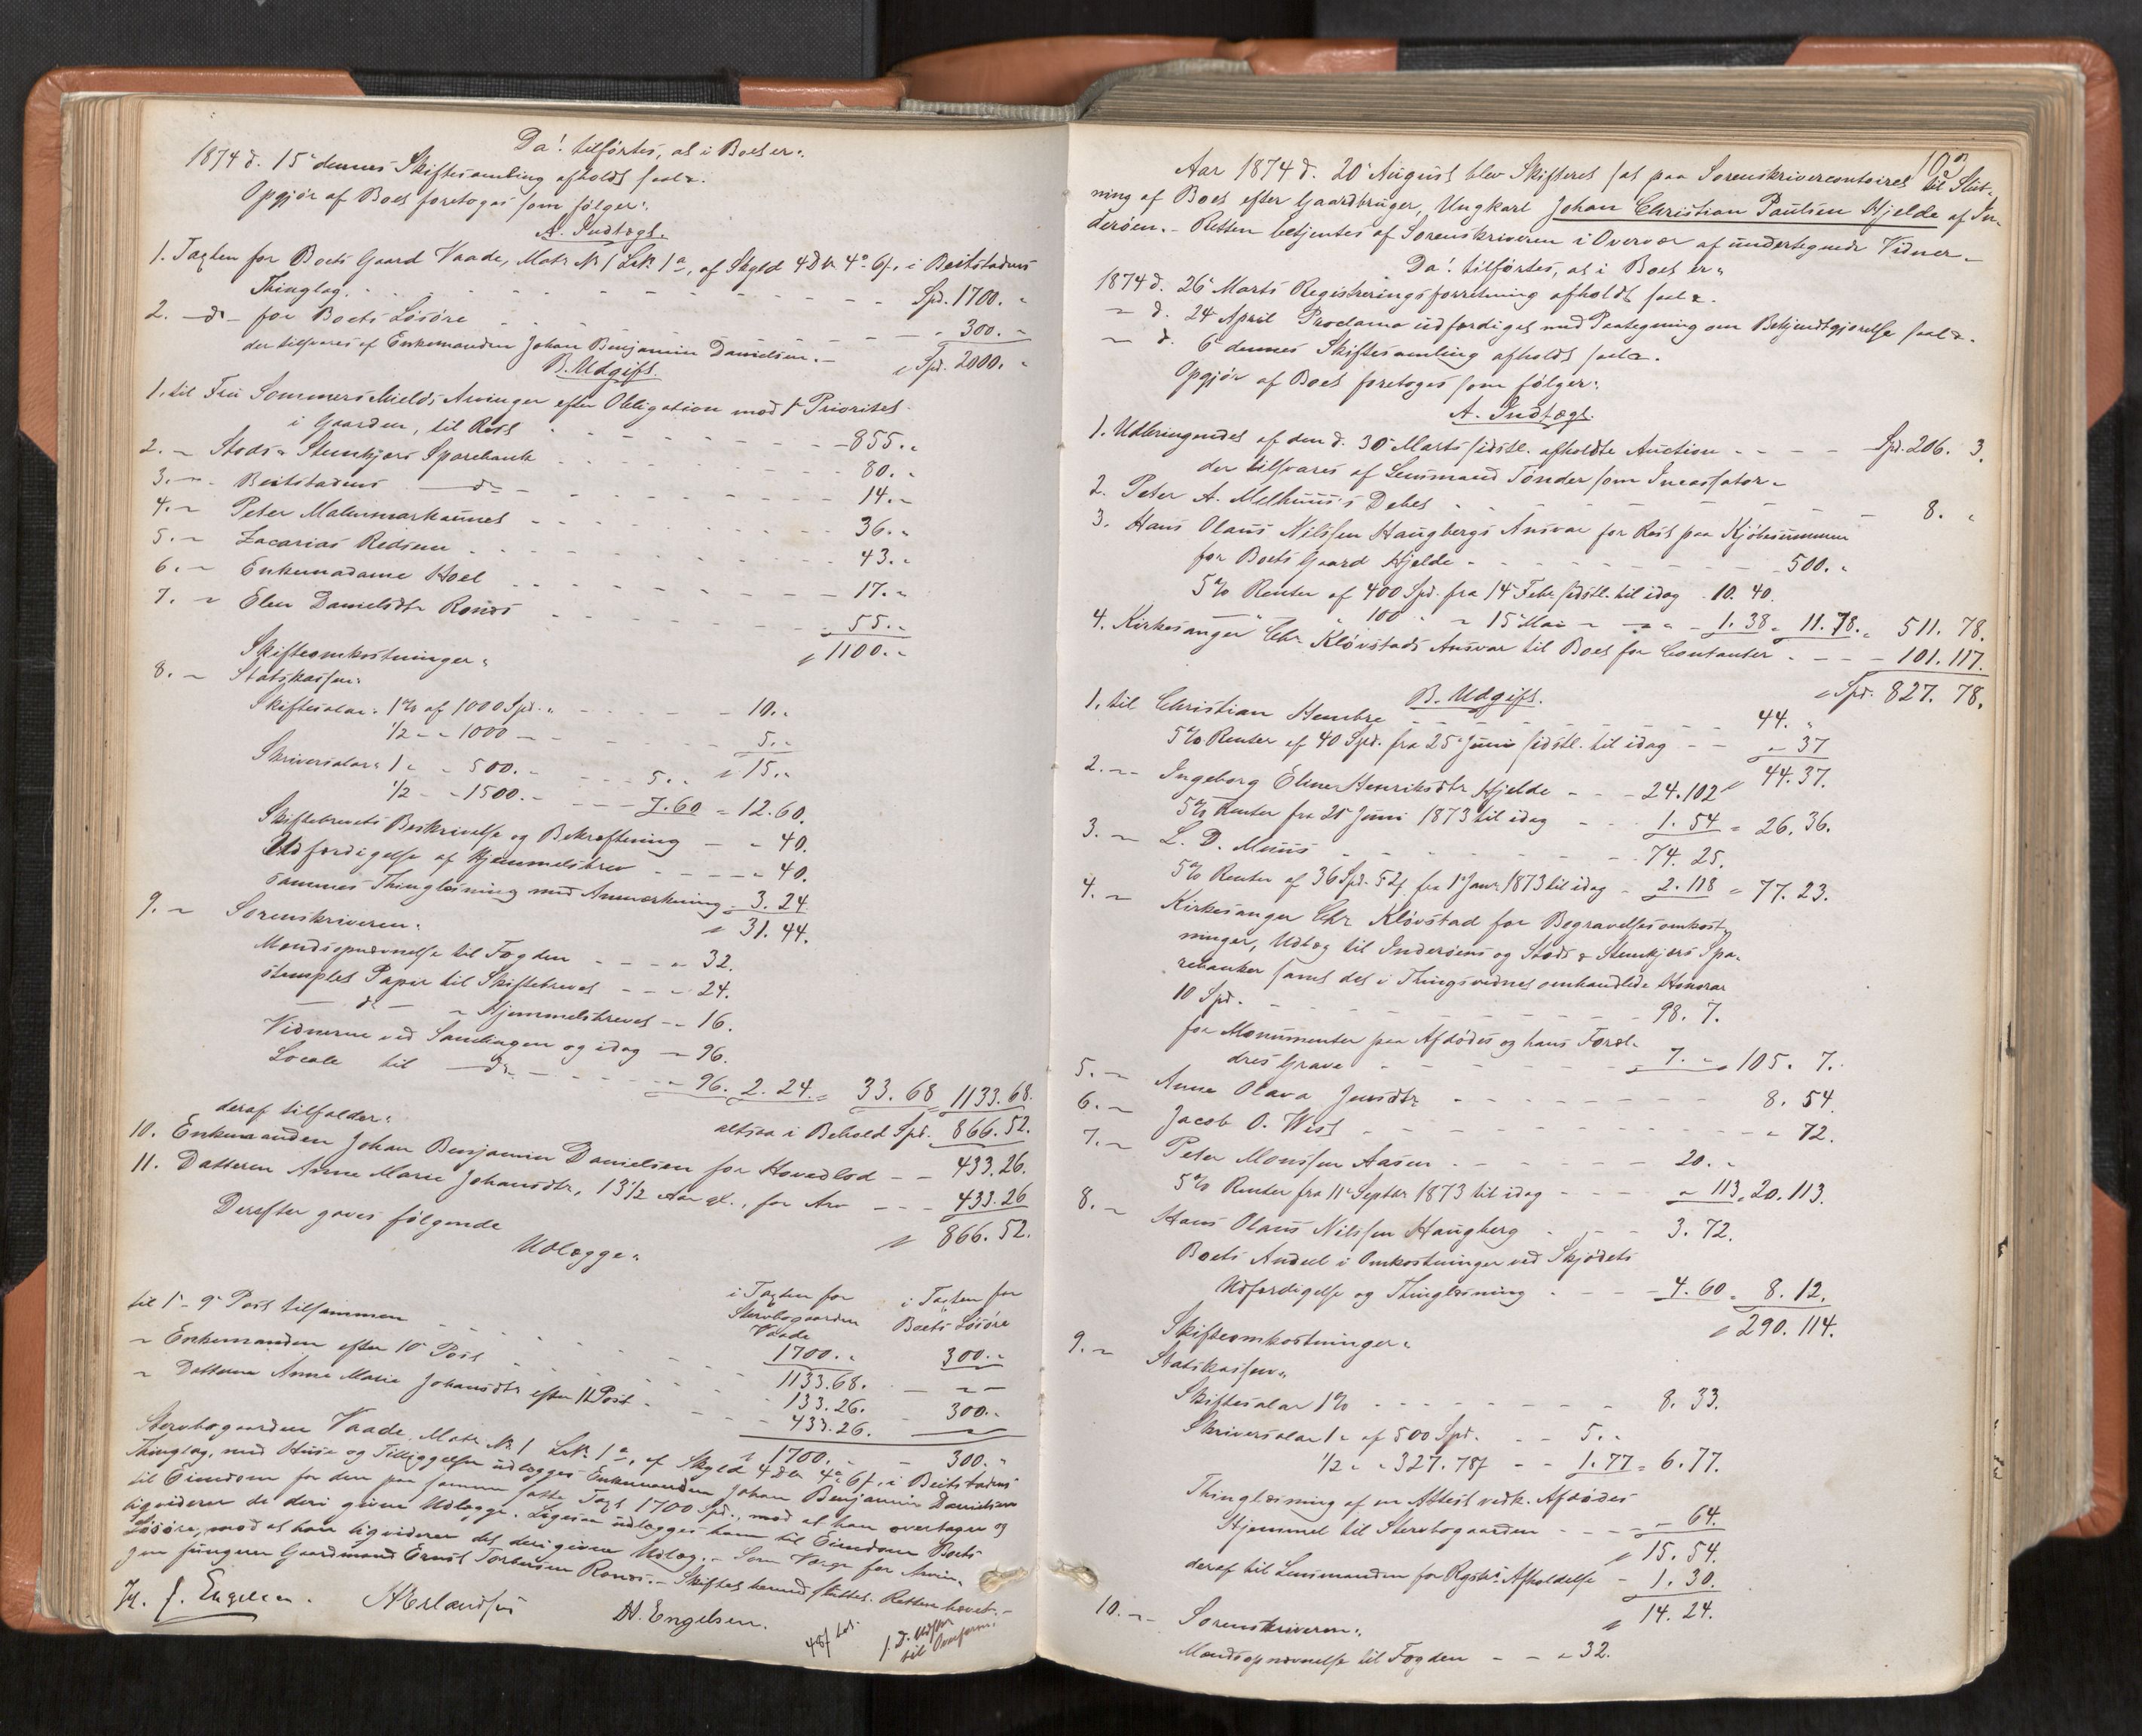 Da! tilførtes, at i Boet er:
1874 d. 15 dennes Skiftesamling afholdt saal.
Opgjør af Boet foretoges som følger:
A. Indtægt.
1. Taxten for Boets Gaard Vaade, Matr. No 1 LNo 1a, af Skyld 4 Dlr. 4 ort 6 s, i Beitstadens
Thinglag. - - - Spd. 1700. "
2. - do - for Boets Løsøre - - - " 300. "
der tilsvares af Enkemanden Johan Benjamin Danielsen. - Spd. 2000. "
B. Udgift.
1, til Fru Sommerschields Arvinger efter Obligation med 1 Prioritet
i Gaarden, til Rest - - - 855. "
2. " Stods & Stenkjærs Sparebank - - - 80. "
3. " Beitstadens - do - - - 14. "
4. " Peter Malummarkaunet - - - 36. "
5. " Zacarias Redsem - - - 43. "
6. " Enkemadame Hoel - - - 17. "
7. " Elen Danielsdtr Ronds - - - 55. "
" 1100. "
Skifteomkostninger:
8. " Statskassen:
Skiftesalar: 1 % af 1000 Spd. " - - - 10. "
1/2 - " 1000 - - - 5. "
" 15. "
Skriversalar: 1 " " 500. " - - 5. "
1/2 - " 1500. " - - - 7.60 = 12.60.
Skiftebrevets Beskrivelse og Bekræftning - " 40.
Udfærdigelse af Hjemmelsbrev - - - " 40.
sammes Thinglæsning med Anmærkning - 3. 24.
" 31. 44.
9. " Sorenskriveren:
Mændsopnævnelse til Fogden - - - " 32.
stemplet Papir til Skiftebrevet - - " 24.
- do - " Hjemmelsbrevet - " 16.
Vidnerne ved Samlingen og idag - " 96.
Locale til - do - - - " 96. 2. 24. = 33. 68 1133. 68.
altsaa i Behold Spd. 866. 52.
deraf tilfalder:
10. Enkemanden Johan Benjamin Danielsen for Hovedlod - - 433. 26.
11. Datteren Anne Marie Johansdtr, 13 1/2 Aar gl., for Arv - - - 433. 26
" 866. 52.
Derefter gaves følgende
Udlægge:
i Taxten for Stervbogaarden Vaade i Taxten for Boets Løsøre
1700. " 300. "
til 1 - 9 Post tilsammen - - - 1133. 68. - " -
" Enkemanden efter 10 Post - - - 133. 26. 300. "
" Datteren Anne Marie Johansdtr efter 11 Post - - - 433. 26. -
" 1700. " - 300. "
Stervbogaarden Vaade, Matr. No. 1 LNo. 1a, af Skyld 4 Dlr 4 ort 6 s, i Beitstadens
Thinglag, med Huse og Tilliggelse udlægges Enkemanden Johan Benjamin Danielsen
til Eiendom for den paa samme satte Taxt 1700 Spd., mod at han overtager og
liqviderer de deri givne Udlægge. Ligesaa udlægges ham til Eiendom Boets
Løsøre, mod at han liqviderer det deri givne Udlæg. - Som Værge for Arvin-
gen fungerer Gaardmand Ernst Torbersen Ronds. - Skiftet hermed sluttet. Retten hævet. -
H. J. Engelsen. A Erlandsen H. Engelsen.
48 s bet.
til
109
Aar 1874 d. 20 August blev Skifteret sat paa Sorenskrivercontoiret til Slut-
ning af Boet efter Gaardbruger, Ungkarl Johan Christian Paulsen Hjelde af In-
derøen. - Retten betjentes af Sorenskriveren i Overvær af undertegnede Vidner. -
Da! tilførtes, at i Boet er:
1874 d. 26 Marts Registreringsforretning afholdt saal.
" d. 24 April Proclama udfærdiget med Paategning om Bekjendtgjørelse saal.
" d. 6 dennes Skiftesamling afholdt saal.
Opgjør af Boet foretoges som følger:
A. Indtægt.
1. Udbringendet af den d. 30 Marts sidstl. afholdte Auction - - - Spd. 206. 3.
der tilsvares af Lensmand Tønder som Incassator. -
2. Peter A. Melhuus's Debet - - - 8. "
3. Hans Olaus Nilssen Haugbergs Ansvar for Rest paa Kjøbesummen
for Boets Gaard Hjelde - - - 500. "
5 % Renter af 400 Spd. fra 14 Febr. sidstl. til idag - 10. 40.
" 100 " " 15 Mai " - " - 1. 38 = 11. 78. = 511. 78.
4. Kirkesanger Chr. Kløvstads Ansvar til Boet for Contanter - - - 101. 117.
" Spd. 827. 78.
B. Udgift.
1, til Christian Hembre - - - 44. "
5 % Renter af 40 Spd. fra 25 Juni sidstl. til idag - - " 37
" 44. 37.
2. " Ingeborg Eline Henriksdtr Hjelde - - - 24. 102
5 % Renter fra 25 Juni 1873 til idag - - 1. 54 = 26. 36.
3. " L. D. Muus - - - 74. 25.
5 % Renter af 36 Spd. 52 s fra 1 Janr 1873 til idag - 2. 118 = 77. 23.
4. " Kirkesanger Chr. Kløvstad for Begravelsesomkost-
ninger, Udlæg til Inderøens og Stods & Stenkjærs Spa-
rebanker samt det i Thingsvidnet omhandlede Honorar
10 Spd. - - - 98. 7.
for Monumenter paa Afdødes og hans Foræl-
dres Grave - - - 7. " = 105. 7.
5. " Anne Olava Jensdtr - - - 8. 54.
6. " Jacob O. West - - - " 72.
7. " Peter Monssen Aasen - - - 20. "
5 % Renter fra 11 Septbr 1873 til idag - - - " 113 = 20. 113.
8. " Hans Olaus Nilssen Haugberg - - - 3. 72.
Boets Andeel i Omkostninger ved Skjødets
Udfærdigelse og Thinglæsning - - - 4. 60 = 8. 12.
" 290. 114.
Skifteomkostninger:
9. " Statskassen:
Skiftesalar 1 % - - - 8. 33.
Skriversalar 1 " af 500 Spd. - - 5. "
1/2 " " 327. 78 s - - 1. 77 = 6. 77.
Thinglæsning af en Attest vedk. Afdødes
Hjemmel til Stervbogaarden - - - " 64.
" 15. 54.
deraf til Lensmanden for Rgstr: Afholdelse - 1. 30.
" 14. 24.
10. " Sorenskriveren:
Mændsopnævnelse til Fogden - - " 32.